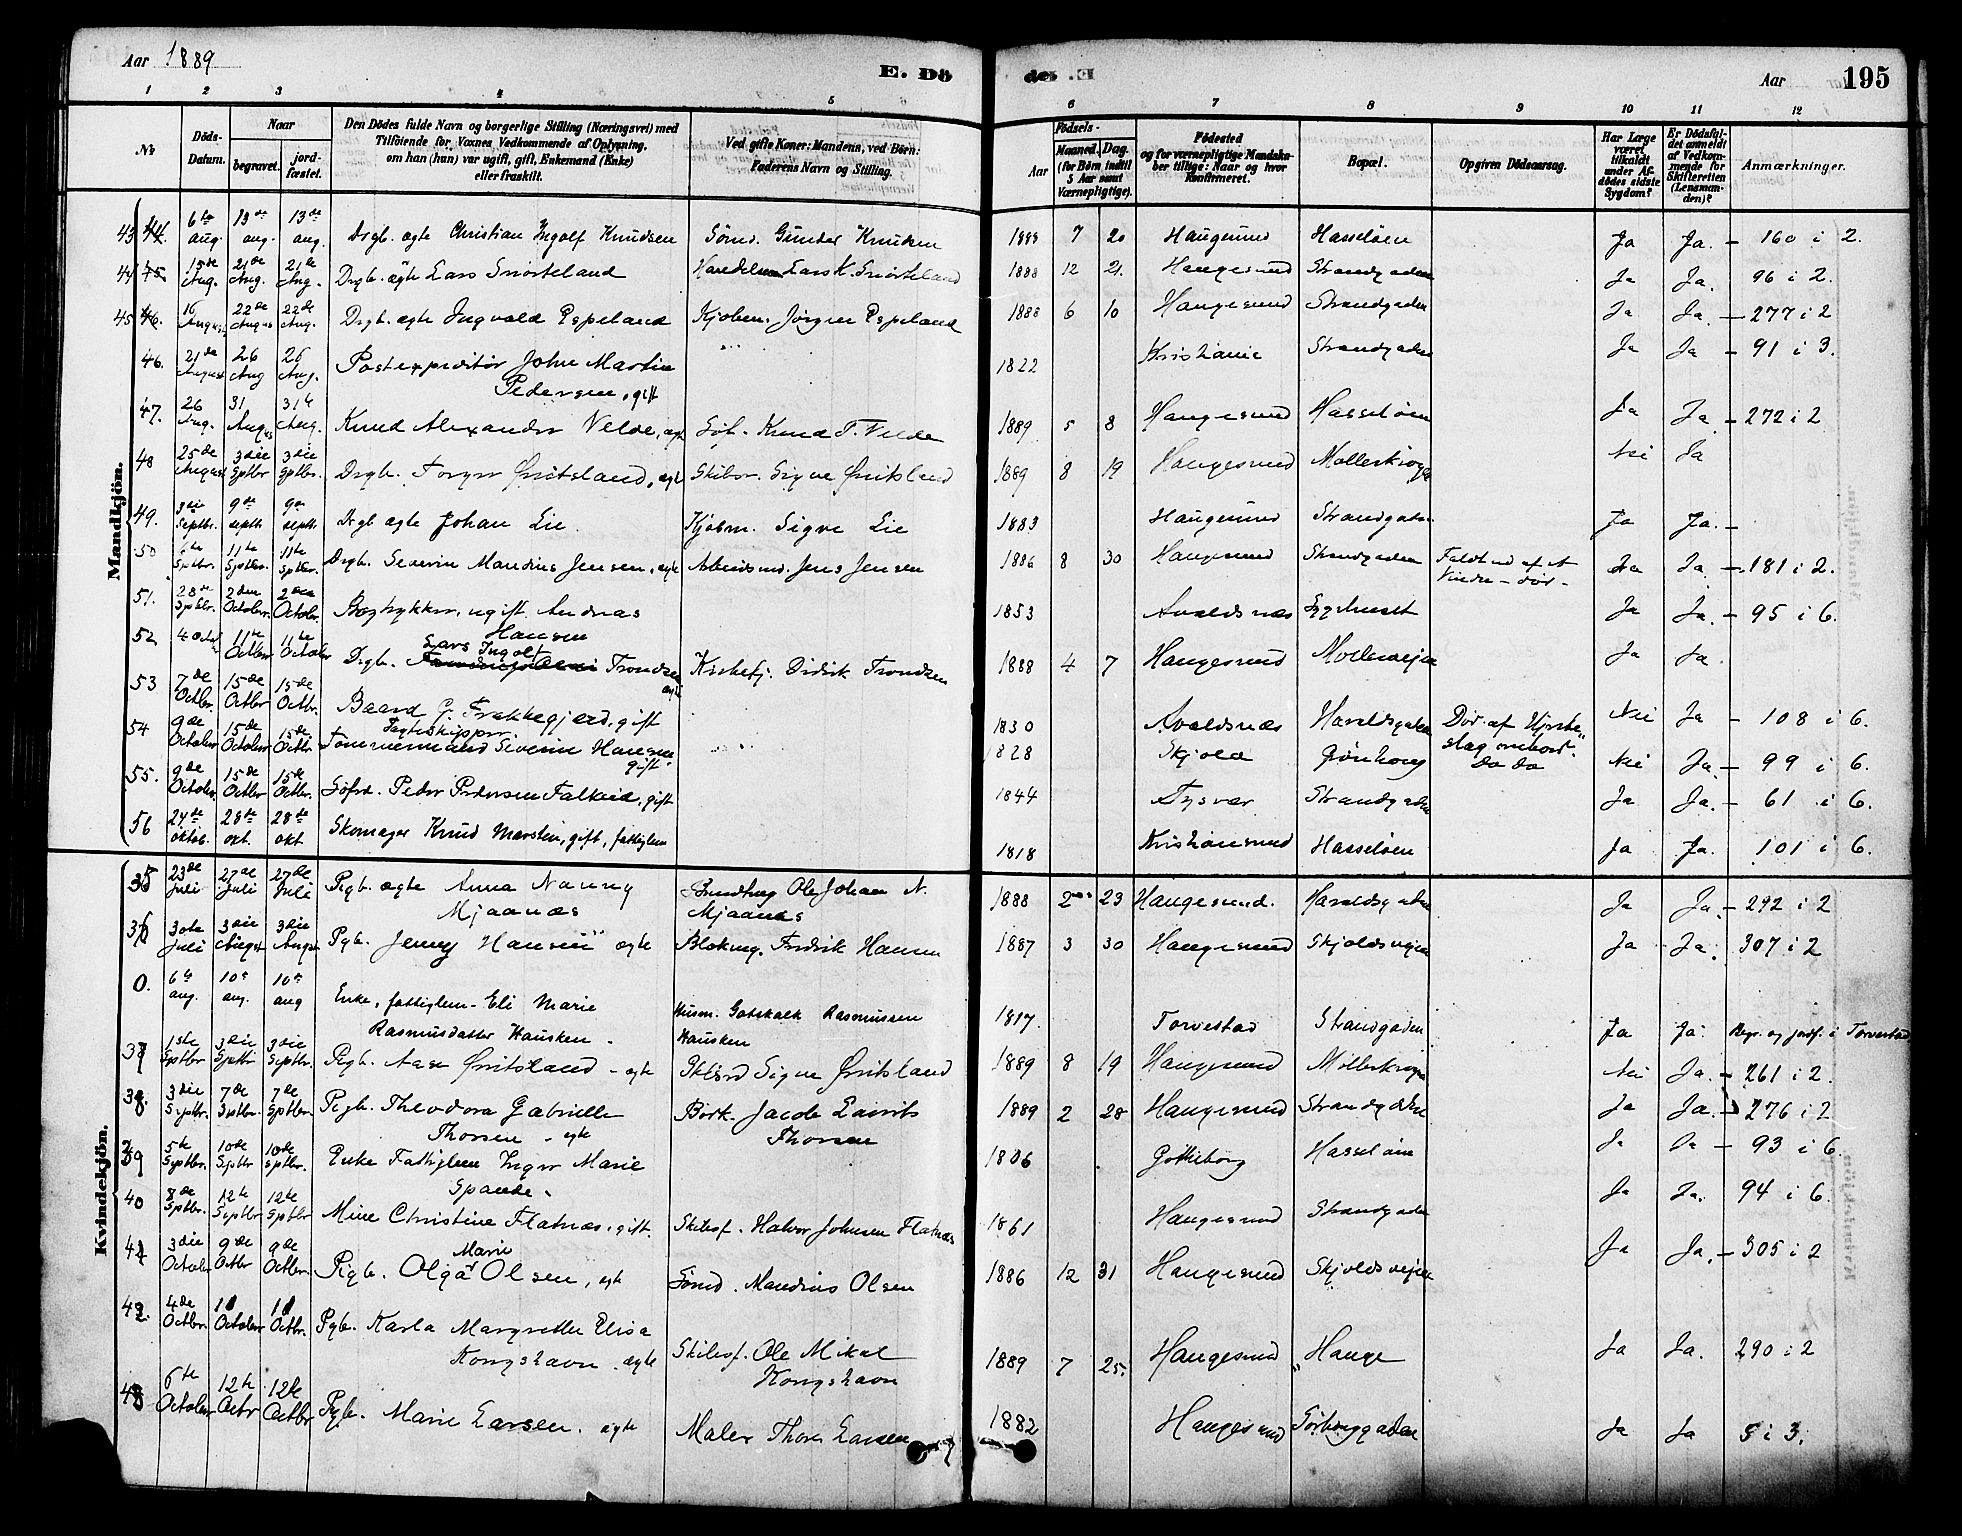 Aar 1889
E. Dö
der .E
Aar
195
1 2 3 4 5 6 7 8 9 10 11 12
№
Döds-Datum.
Naar
begravet.
jord-fæstet.
Den Dödes fulde Navn og borgerlige Stilling (Næringsvei) med
Tilföiende for Voxnes Vedkommende af Oplysning,
om han (hun) var ugift, gift, Enkemand (Enke)
eller fraskilt.
Ved gifte Koner: Mandens, ved Börn:
Faderens Navn og Stilling.
Födsels-
Aar
Maaned. Dag.
(for Börn indtil
5 Aar samt
Værnepligtige).
Födested
og for værnepligtige Mandska-
ber tillige: Naar og hvor
konfirmeret.
Bopæl.
Opgiven Dödsaarsag.
Har Læge
været
tilkaldt
under Af-
dödes sidste
Sygdom?
Er Dödsfal-
det anmeldt
af Vedkom-
mende for
Skifteretten
(Lensman-
den)?
Anmærkninger.
Mandkjön.
43 6te aug. 13de aug. 13de aug. Drgb. ægte Christian Ingolf Knudsen Sömd. Gunder Knudsen 1888 7 20 Haugesund Hasselöen Ja Ja. – 160 i 2.
44 Aug. 21de Aug. 21de Aug. Drgb. ægte Lars Snörteland Handelsm Lars K. Snörteland 1888 12 21. Haugesund Strandgaden Ja Ja. 96 i 2.
45 16 August 22de August 22de Aug. Drgb. ægte Ingvald Espeland Kjöbm. Jörgen Espeland 1888 6 10 Haugesund Strandgaden Ja Ja. – 277 i 2
46. 21de August 26 Aug 26 Aug. Postexpeditör John Martin
Pedersen, gift 1822 Kristiania Strandgaden Ja Ja – 91 i 3.
47. 26 Aug. 31 August 31te Aug. Knud Alexander Velde, ægte Söf. Knud T. Velde 1889 5 8 Haugesund Hasselöen Ja Ja – 272 i 2
48 25de August 3die Sptbr 3die Sptbr. Drgb. Torger Øritsland, ægte Skibsr. Sigve Øritsland 1889 8 19 Haugesund Nei Ja
49. 3die Septbr. 9de septbr 9de septbr. Drgb ægte Johan Lie. Kjöbm. Sigve Lie 1883 Haugesund Strandgaden Ja Ja. –
50 6te Sptbr. 11te Sptbr. 11te Sptbr. Drgb. Severin Mandius Jensen, ægte Arbeidsmd. Jens Jensen 1886 8 30 Haugesund Strandgaden Faldt ud af et
Vindu – död – Ja Ja – 181 i 2.
51. 28de Sptbr. 2den October 2den October. Bogtrykker, ugift Andreas
Hansen 1853 Avaldsnæs Sygehuset Ja Ja. – 95 i 6.
52 4 Octob 11te Octbr 11te October Drgb. Lars Ingolf Trondsen ægte Kirketj. Didrik Trondsen 1888 4 7 Haugesund Ja Ja.
53 7de Octbr. 15de Octbr 15de Octbr. Baard G. Frakkegjerd, gift
Jagteskipper. 1830 Avaldsnæs Haraldsgaden Död af Hjerte-
slag ombord. Nei Ja – 108 i 6.
54 9de October 15de October 15de Octbr Tömmermand Severin Hansen
gift. 1828 Skjold Grönhoug Do Do Nei Ja. – 99 i 6.
55. 9de October. 15de Octbr 15de Octbr. Söfd. Peder Pedersen Falkeid, gift 1844 Tysvær Strandgaden Ja Ja. – 61 i 6.
56 24de oktob. 28de oct. 28de okt Skomager Knud Marstein, gift, fattiglem 1818 Kristiansund Hasselöen Ja Ja. 101 i 6.
Kvindekjön.
35 23de Juli 27de Juli 27de Juli Pigb. ægte Anna Nanny
Mjaanæs Ole Johan N.
Mjaanæs 1888 2 23 Haugesund. Haraldsgaden Ja Ja. – 292 i 2
36 30te Juli 3die August 3die August Pgb. Jenny Hansen ægte Blokmg. Fredrik Hansen 1887 3 30 Haugesund Skjoldsvejen Ja Ja. 307 i 2
0. 6te aug. 10de aug. 10de aug Enke, fattiglem – Eli Marie
Rasmusdatter Hausken – Husm. Gotskalk Rasmussen
Hausken 1817. Torvestad Strandgaden Ja Ja. Begr. og jordf. i Torvestad
37 1ste Sptbr 3die Sptbr 3die Septbr. Pigb. Aase Øritsland – ægte Sigve Øritsland 1889 8 19 Haugesund Nei Ja. – 261 i 2.
38. 3die Septbr. 7de Sptbr. 7de Sptbr. Pigb. Theodora Gabrielle
Thorsen – ægte Jacob Lavrits
Thorsen 1889 2 28 Haugesund Strandgaden Ja Ja. 276 i 2
39 5te Septbr. 10de Sptbr 10de Sptbr. Enke Fattiglem Inger Marie
Spande. 1806 Gottebörg Hasselöen Ja Ja – 93 i 6.
40 8de Sptbr. 12te Septbr 12te Sptbr Mine Christine Flatnæs, gift. Skibsf. Halvor Johnsen Flatnæs 1861 Haugesund Strandgaden Ja Ja. 94 i 6.
41 3die October 9de Octbr 9de Octbr. Pigb. Olga Marie Olsen, egte Sömd. Mandius Olsen 1886 12 31 Haugesund Skjoldsvejen Ja Ja. – 305 i 2
42. 4de Octbr. 10 October 10 Octbr. Pgb. Karla Margrethe Elisa
Kongshavn, ægte Skibsf. Ole Mikal
Kongshavn 1889 7 25. Haugesund Hauge Ja Ja. 290 i 2
43 6te October 12te Octbr 12te Octbr Pgb. Marie Larsen. ægte Maler Thore Larsen 1882 Haugesund Sörhauggaden Ja Ja 5 i 3.